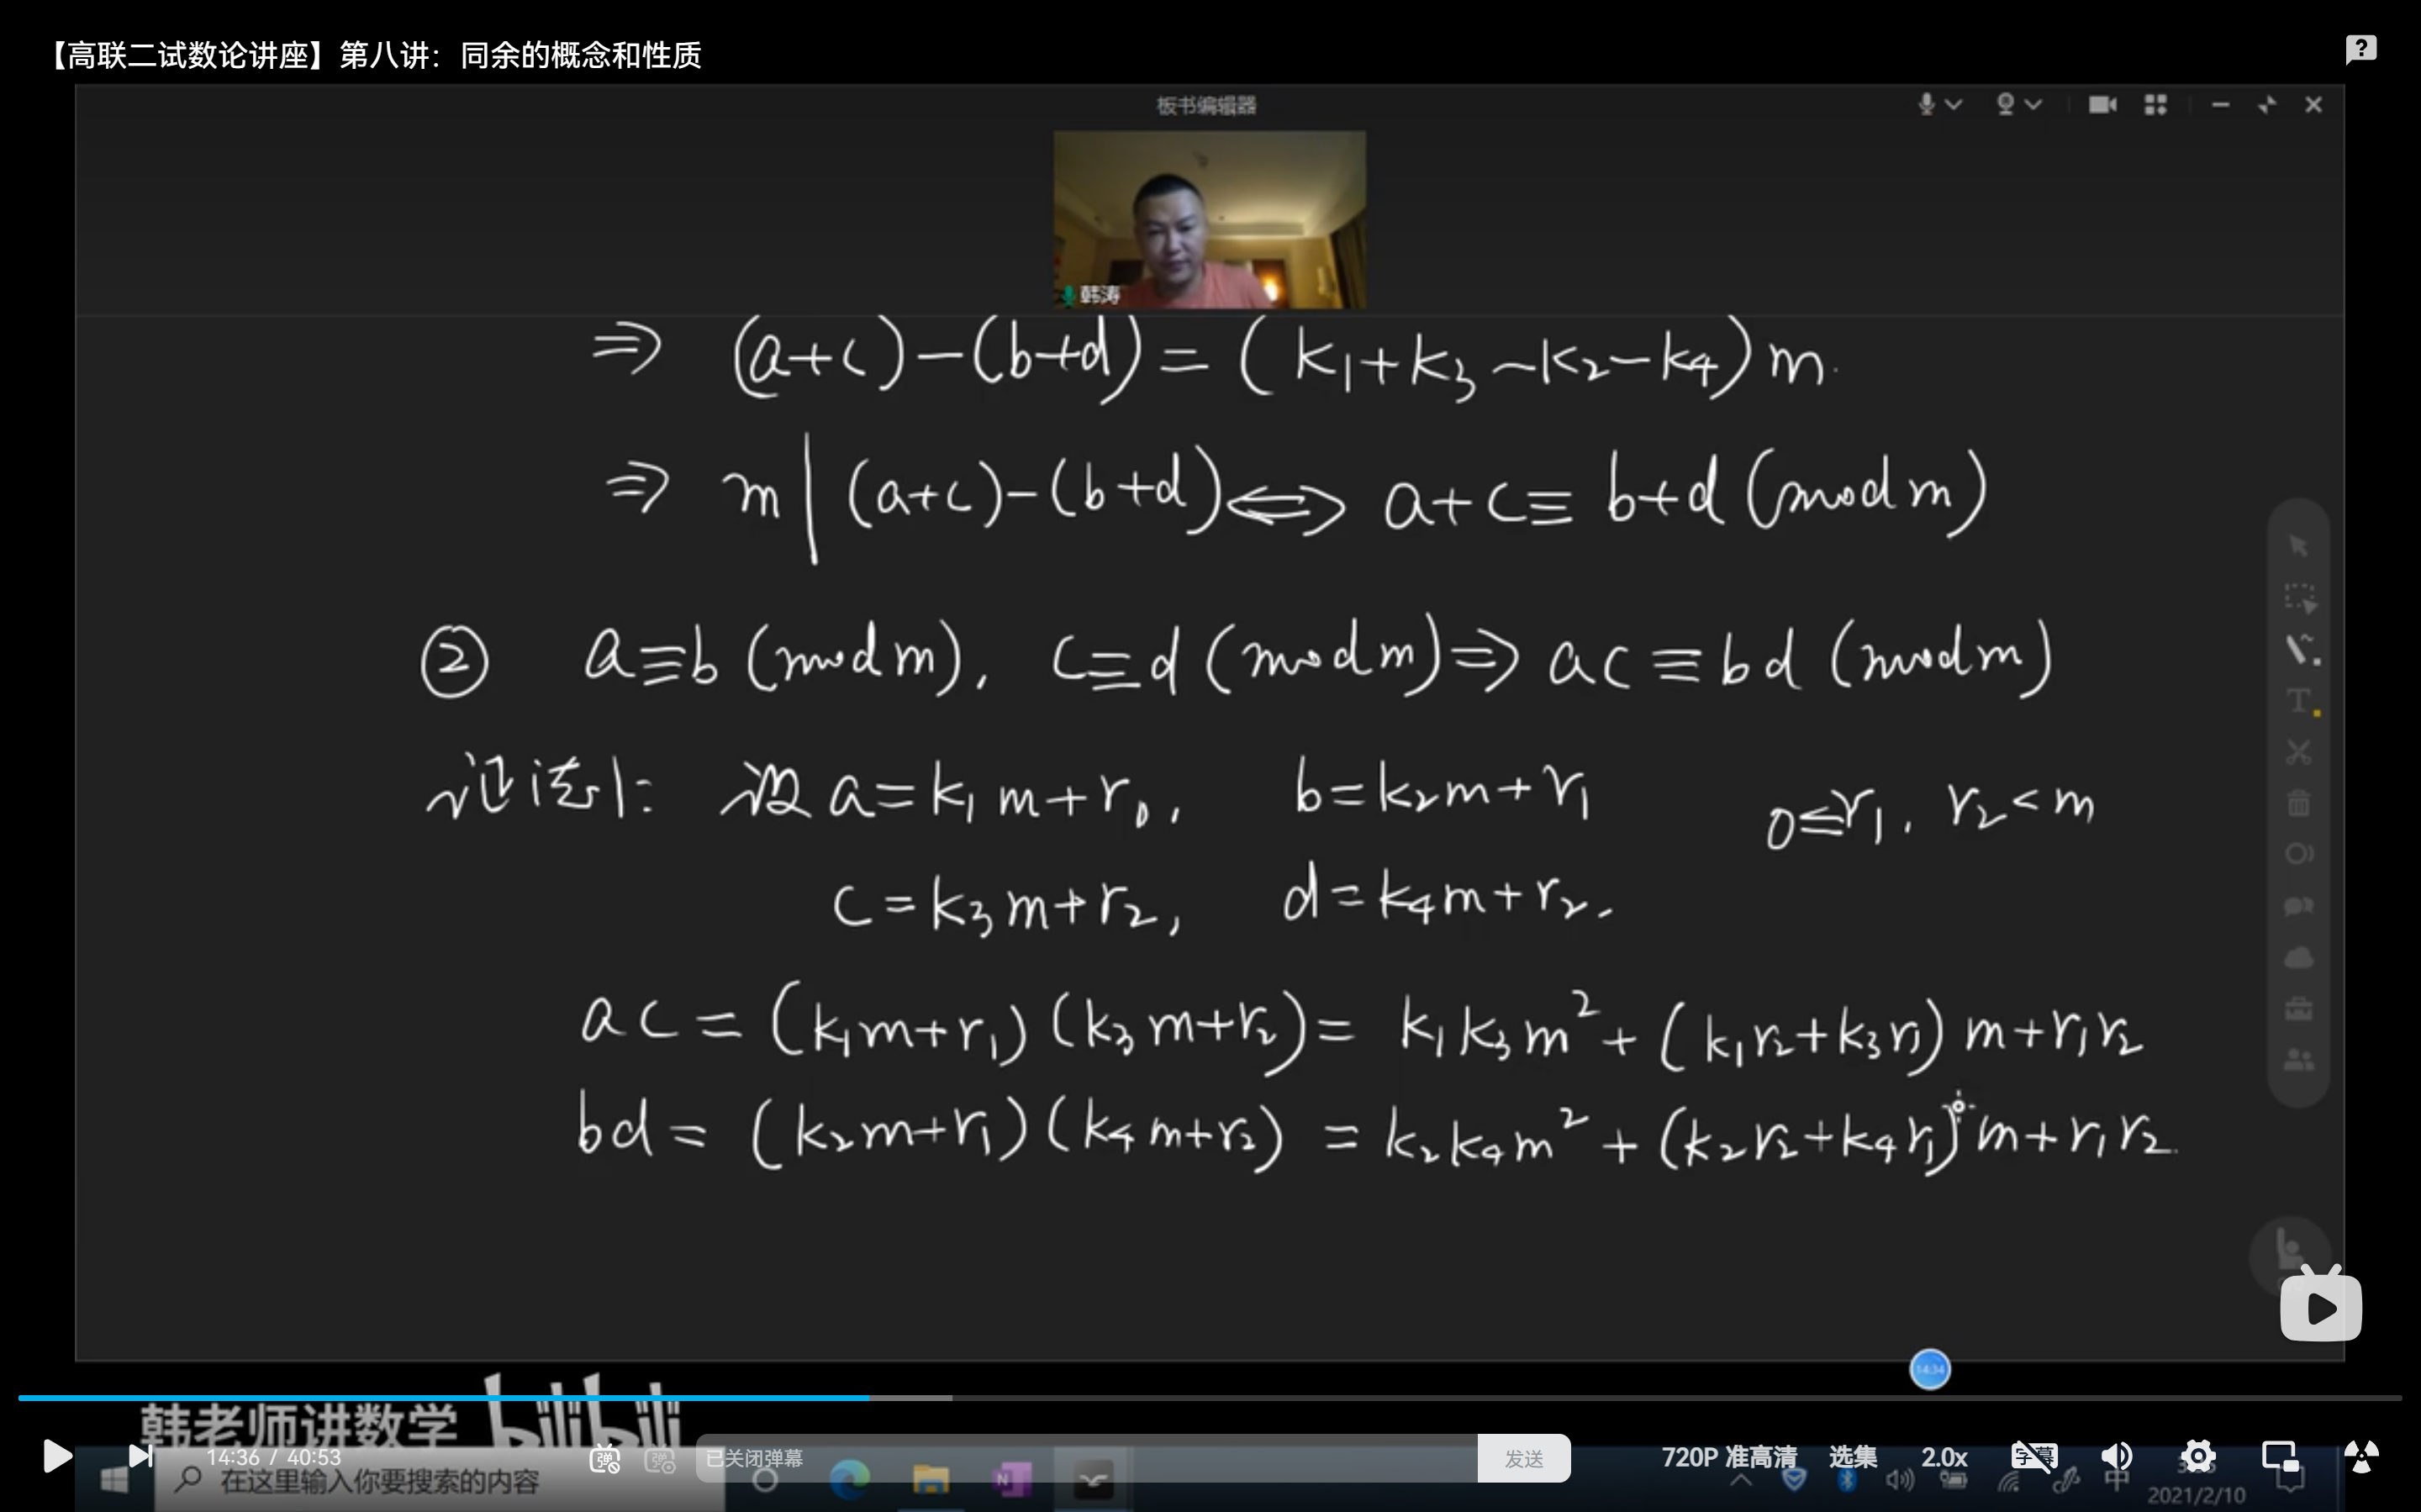 【高联二试数论讲座】第八讲：同余的概念和性质
板书编辑器
韩涛
⇒ (a+c)-(b+d)=(k₁+k₃-k₂-k₄)m.
⇒ m|(a+c)-(b+d)⟺ a+c≡b+d(mod m)
② a≡b(mod m), c≡d(mod m)⇒ac≡bd(mod m)
证法1: 设a=k₁m+r₁, b=k₂m+r₁ 0≤r₁, r₂<m
c=k₃m+r₂, d=k₄m+r₂.
ac=(k₁m+r₁)(k₃m+r₂)=k₁k₃m²+(k₁r₂+k₃r₁)m+r₁r₂
bd=(k₂m+r₁)(k₄m+r₂)=k₂k₄m²+(k₂r₂+k₄r₁)m+r₁r₂.
14:34
韩老师讲数学 bilibili
14:36 / 40:53 弹 弹 已关闭弹幕 发送 720P 准高清 选集 2.0x 字幕
在这里输入你要搜索的内容 中
2021/2/10